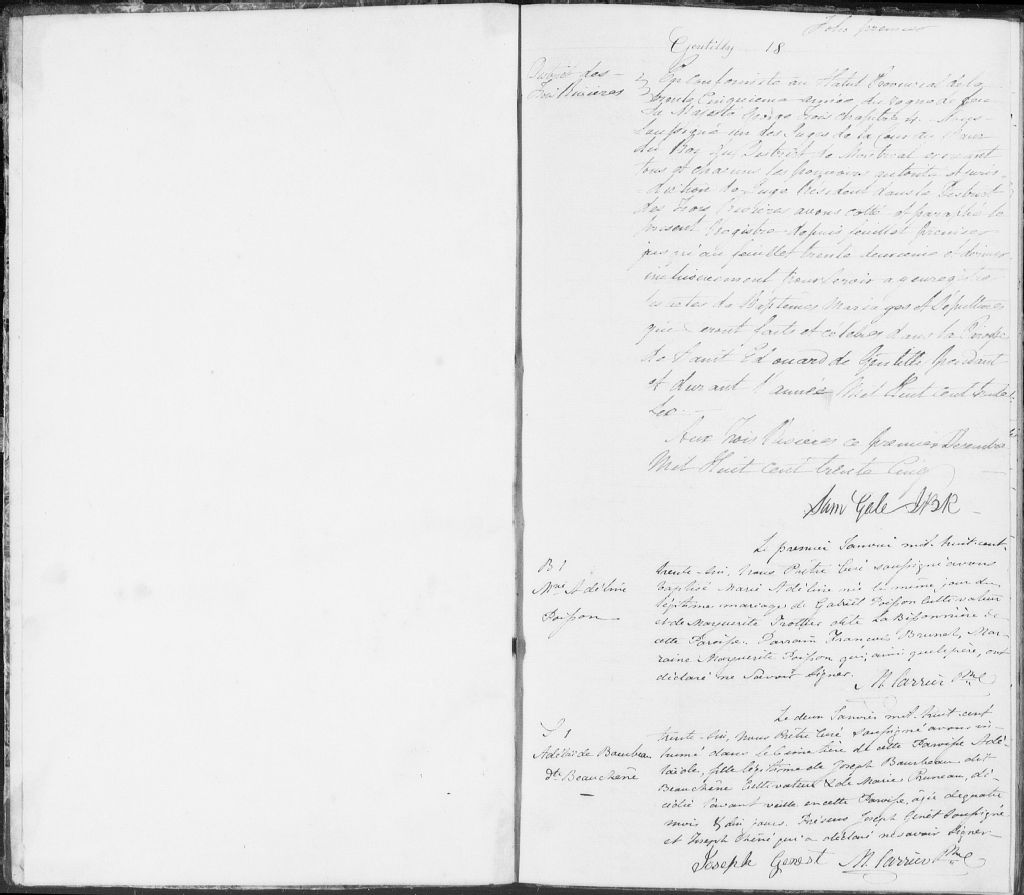 Folio premier
Gentilly 18
District des
Trois Rivieres
En Conformité au Statut Provincial de la
trente Cinquieme année du regne de feu
Sa Majesté George Trois Chapitre 4. Nous
Soussigné un des Juges de la Cour du Banc
du Roy du District de Montreal exerçant
tous et chacuns les pouvoirs autorité et juris-
-diction de Juge Resident dans le District
des Trois Rivieres avons cotté et paraphé le
present Registre depuis feuillet premier
jusqu'au feuillet trente deuxieme et dernier
inclusivement pour servir a enregistrer
les actes de Baptemes Mariages et Sépultures
qui seront faits et célebrés dans la Paroisse
de Saint Edouard de Gentilly pendant
et durant l'année Mil Huit cent trente
Six
Aux Trois Rivieres ce premier Decembre
Mil Huit cent trente Cinq
Sam Gale JBR
B 1
Mrie Adéline
Poisson
Le premier Janvier mil-huit-cent-
trente-six, Nous Prêtre Curé soussigné avons
baptisé Marie Adéline née le même jour du
légitime mariage de Gabriël Poisson Cultivateur
et de Marguerite Trottier dite La Bissonnière de
cette Paroisse. Parrain François Brunel, Mar-
raine Marguerite Poisson qui, ainsi que le père, ont
déclaré ne Savoir Signer.
M. Carrier Ptre C
S 1
Adélaïde Baurbeau
dte Beauchêne
Le deux Janvier mil-huit-cent
trente-six, Nous Prêtre Curé Soussigné avons in-
humé dans le Cimetière de cette Paroisse Adé-
laïde, fille légitime de Joseph Baurbeau dit
Beauchêne Cultivateur & de Marie Pruneau, dé-
cédée l'avant veille en cette Paroisse, âgée de quatre
mois & dix jours. Présens Joseph Genêt Soussigné
et Joseph Chêné qui a déclaré ne savoir Signer
Joseph Genest M. Carrier Ptre C